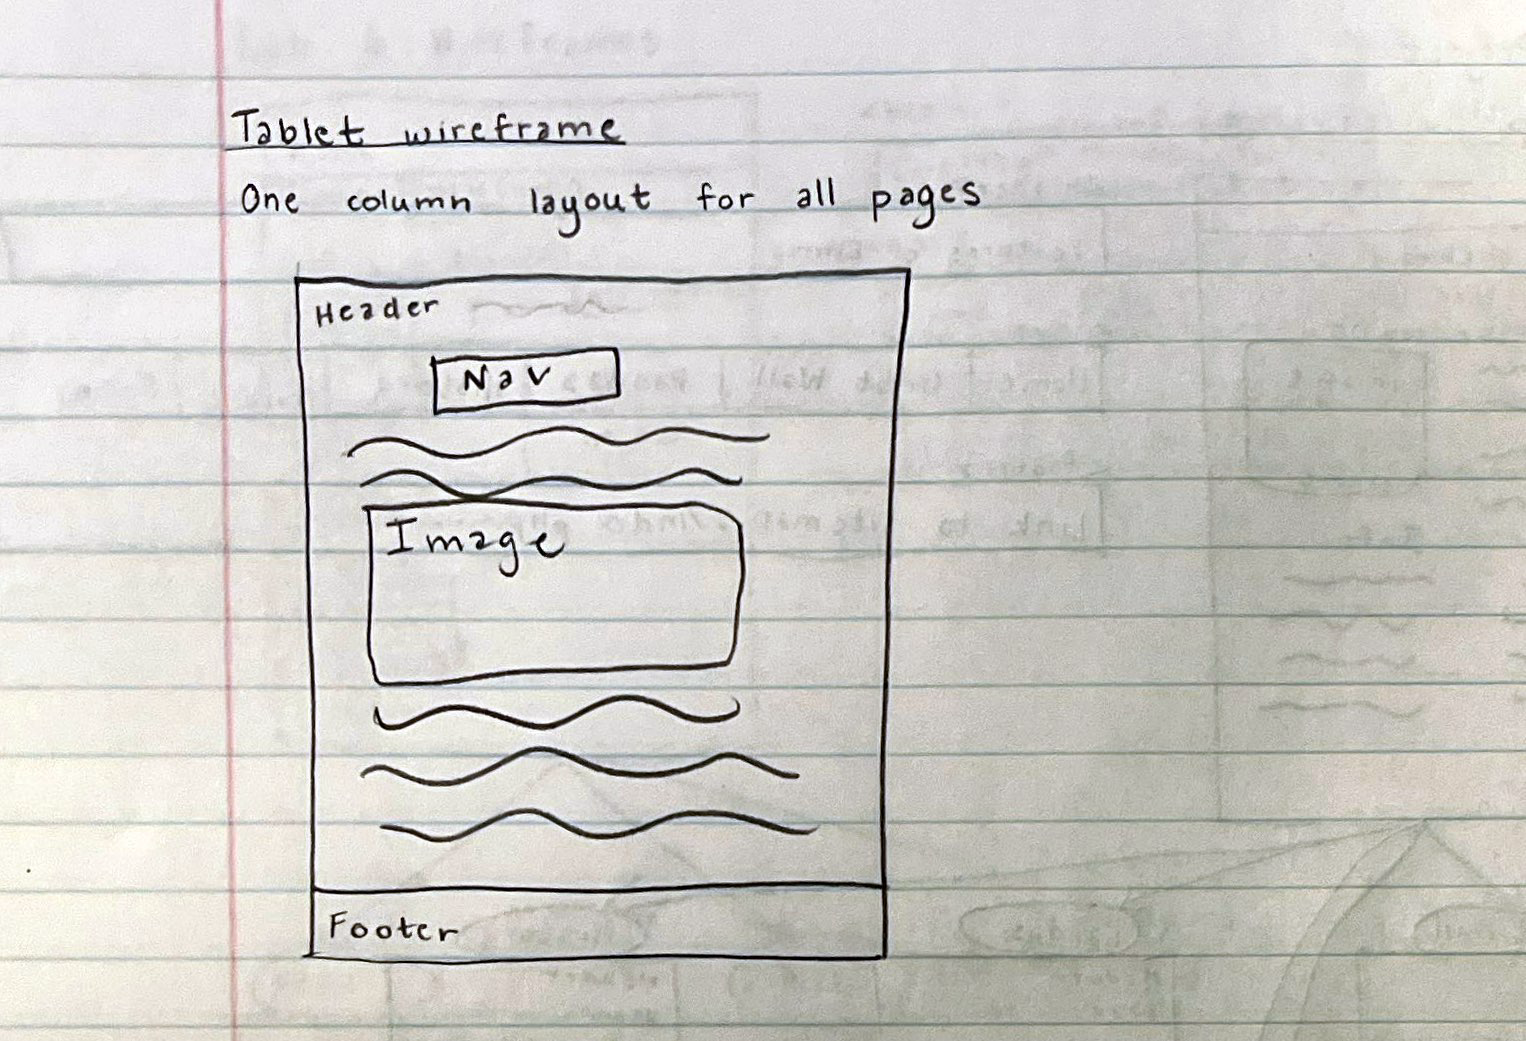 Tablet wireframe
One column layout for all pages
Header
Nav
Image
Footer